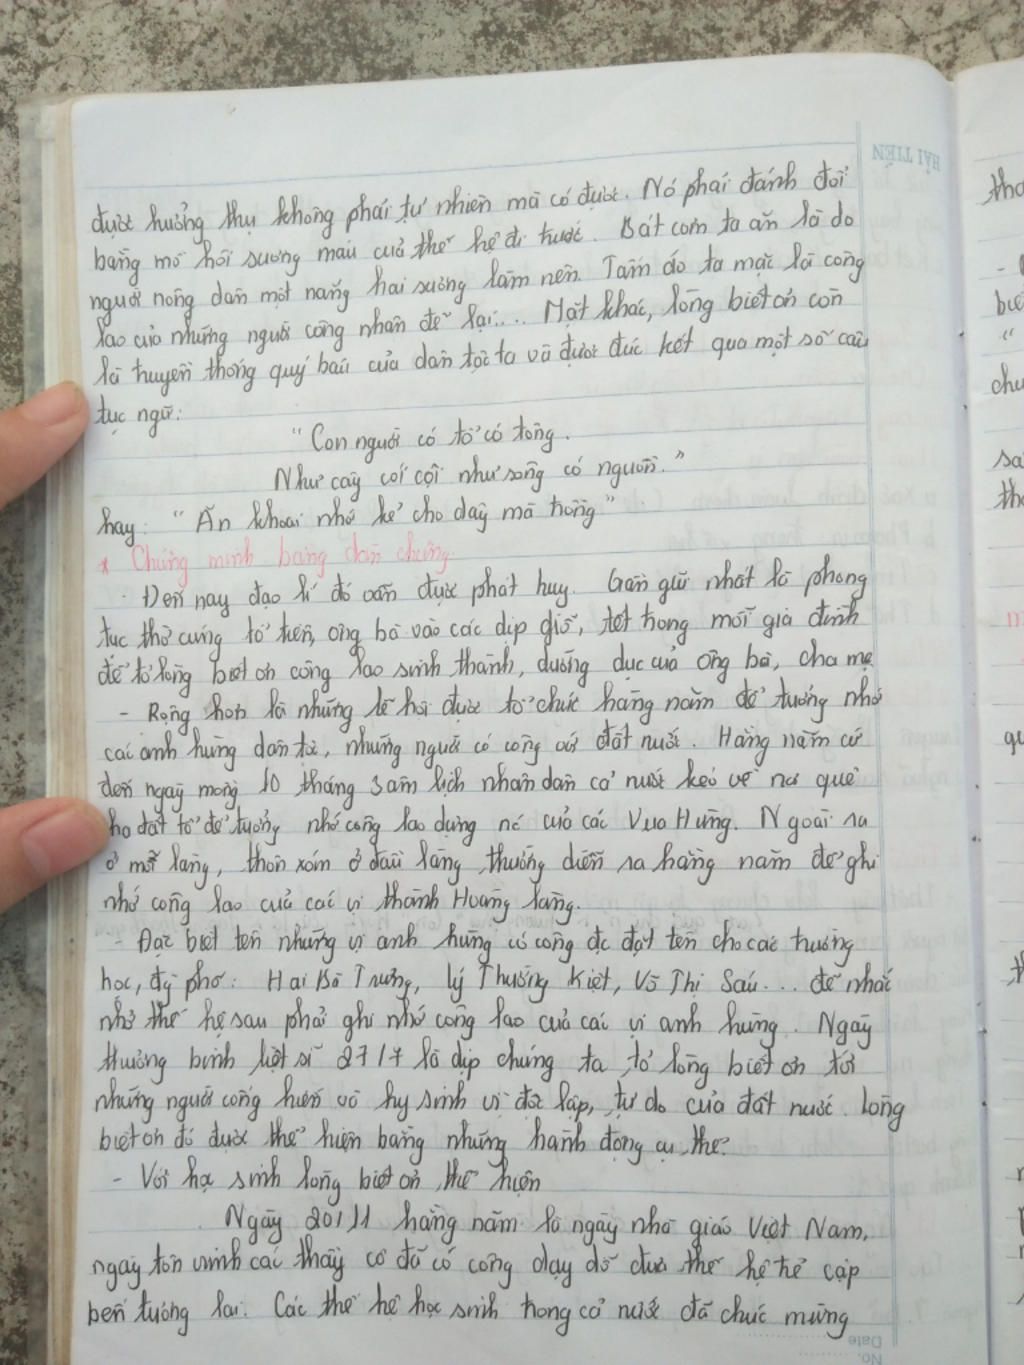 được hưởng thụ không phải tự nhiên mà có được. Nó phải đánh đổi
bằng mồ hôi sương máu của thế hệ đi trước. Bát cơm ta ăn là do
người nông dân một nắng hai sương làm nên. Tấm áo ta mặc là công
lao của những người công nhân để lại... Mặt khác, lòng biết ơn còn
là truyền thống quý báu của dân tộc ta và được đúc kết qua một số câu
tục ngữ:
"Con người có tổ có tông.
Như cây cối cội như sông có nguồn."
hay: "Ăn khoai nhớ kẻ cho dây mà trồng"
* Chứng minh bằng dẫn chứng
- Đến nay đạo lí đó vẫn được phát huy. Gần gũi nhất là phong
tục thờ cúng tổ tiên, ông bà vào các dịp giỗ, tết trong mỗi gia đình
để tỏ lòng biết ơn công lao sinh thành, dưỡng dục của ông bà, cha mẹ
- Rộng hơn là những lễ hội được tổ chức hàng năm để tưởng nhớ
các anh hùng dân tộc, những người có công với đất nước. Hàng năm cứ
đến ngày mồng 10 tháng 3 âm lịch nhân dân cả nước kéo về nơi quê
cha đất tổ để tưởng nhớ công lao dựng nc của các Vua Hùng. Ngoài ra
ở mỗi làng, thôn xóm ở đầu làng thường diễn ra hàng năm để ghi
nhớ công lao của các vị thành Hoàng làng.
- Đặc biệt tên những vị anh hùng có công đc đặt tên cho các trường
học, đg phố: Hai Bà Trưng, lý Thường Kiệt, Võ Thị Sáu... để nhắc
nhở thế hệ sau phải ghi nhớ công lao của các vị anh hùng. Ngày
thương binh liệt sĩ 27/7 là dịp chúng ta tỏ lòng biết ơn tới
những người cống hiến và hy sinh vì độc lập, tự do của đất nước. Lòng
biết ơn đó được thể hiện bằng những hành động cụ thể:
- Với học sinh lòng biết ơn thể hiện
Ngày 20/11 hằng năm là ngày nhà giáo Việt Nam,
ngày tôn vinh các thầy cô đã có công dạy dỗ đưa thế hệ trẻ cập
bến tương lai. Các thế hệ học sinh trong cả nước đã chúc mừng
HẢI TIẾN
Date
No.